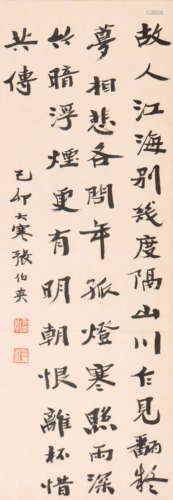 故人江海别幾度隔山川乍見翻疑
夢相悲各問年孤燈寒照雨深
竹暗浮煙更有明朝恨離杯惜
共傳
己卯大寒張伯英